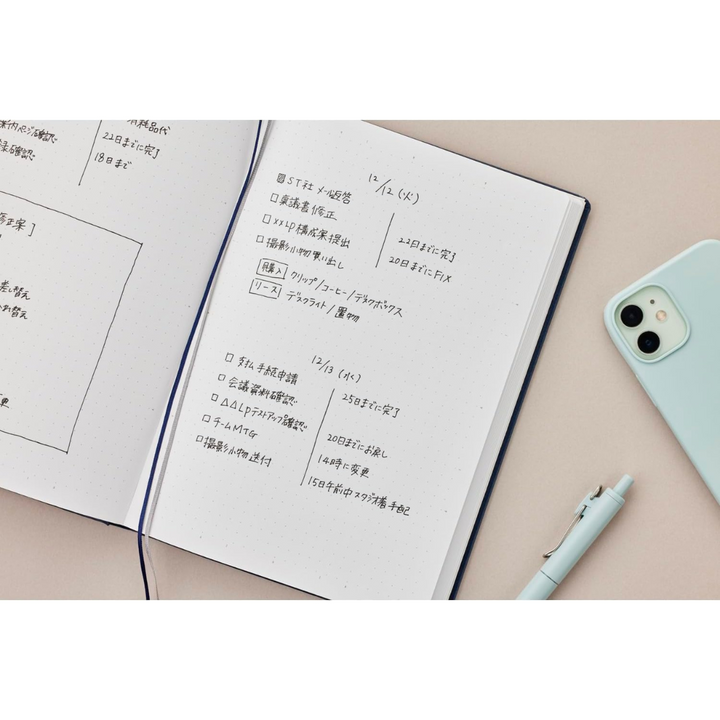 内ページ確認
確認
消耗品代
22日までに完了
18日まで
修正案]
差し替え
れ替え
変更
12/12 (火)
ST社 メール返答
□ 稟議書修正
□ xxLp構成案提出
22日までに完了
□ 撮影小物買い出し
20日までにFIX
購入 クリップ/コーヒー/デスクボックス
リース デスクライト/置物
12/13 (水)
□ 支払手続申請
□ 会議資料確認
25日までに完了
□ △△Lpテストアップ確認
□ チームMTG
20日までにお戻し
14時に変更
□ 撮影小物送付
15日午前中スタジオ着手配